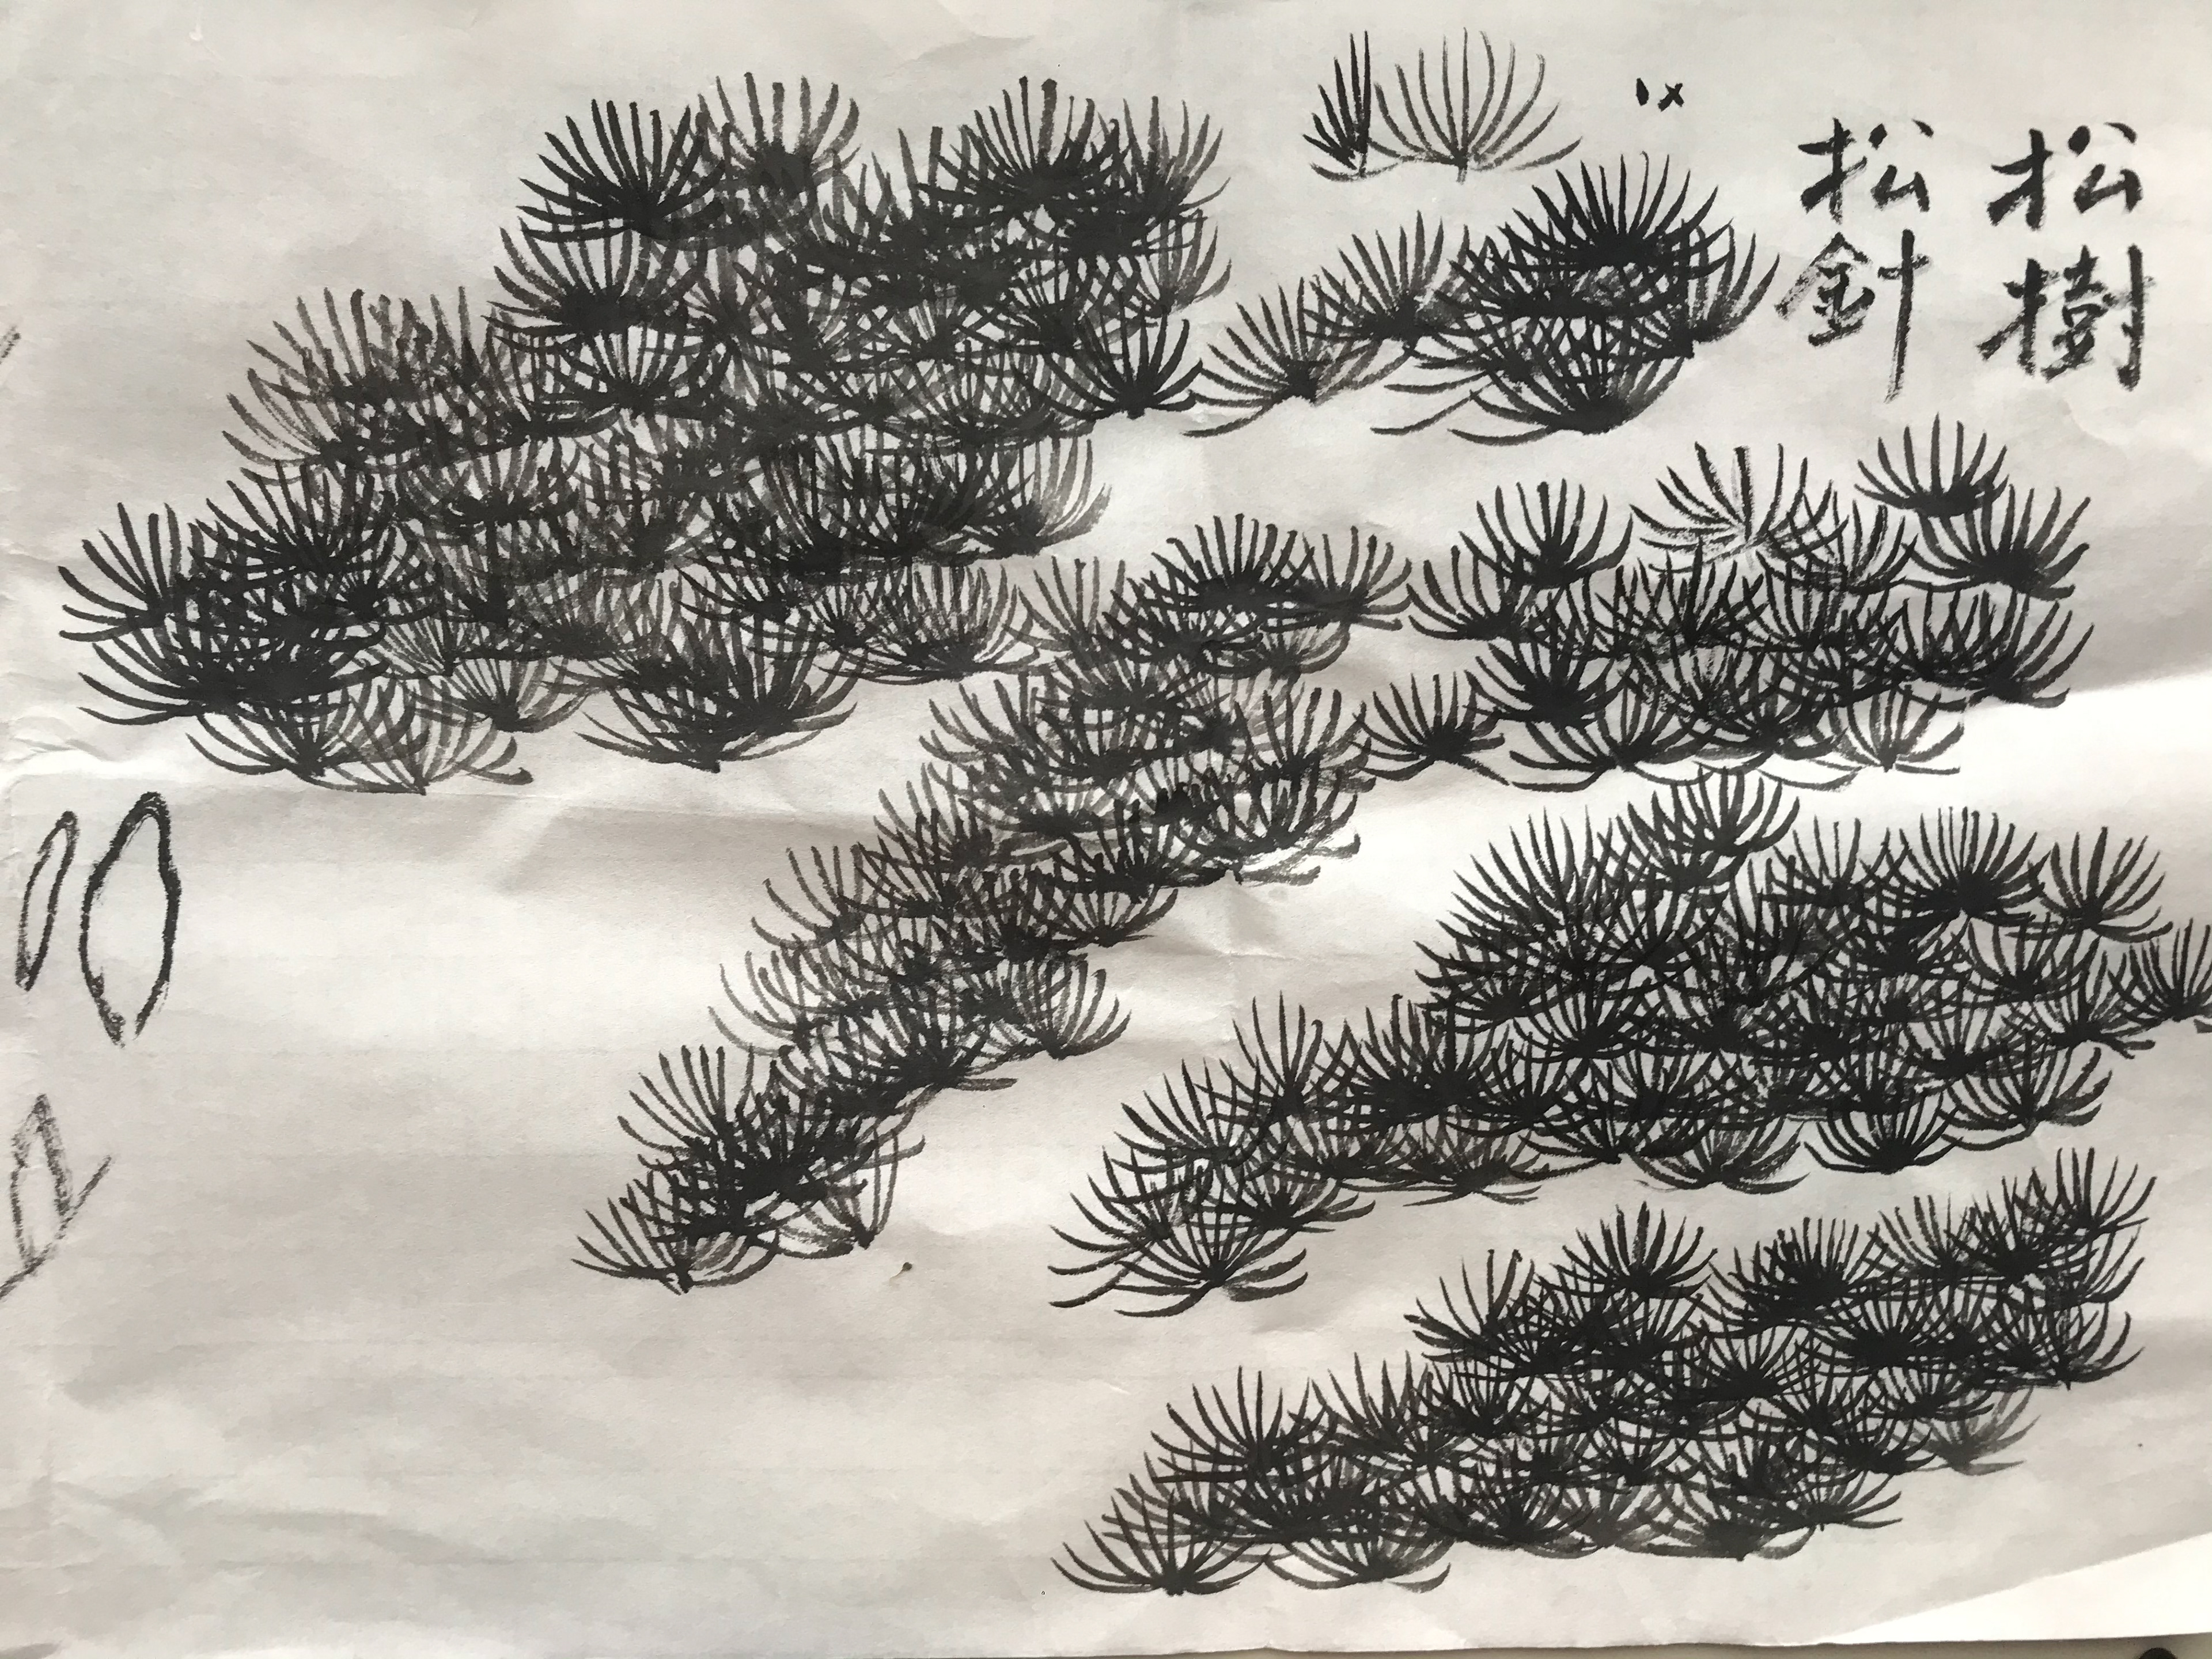 松樹
松針